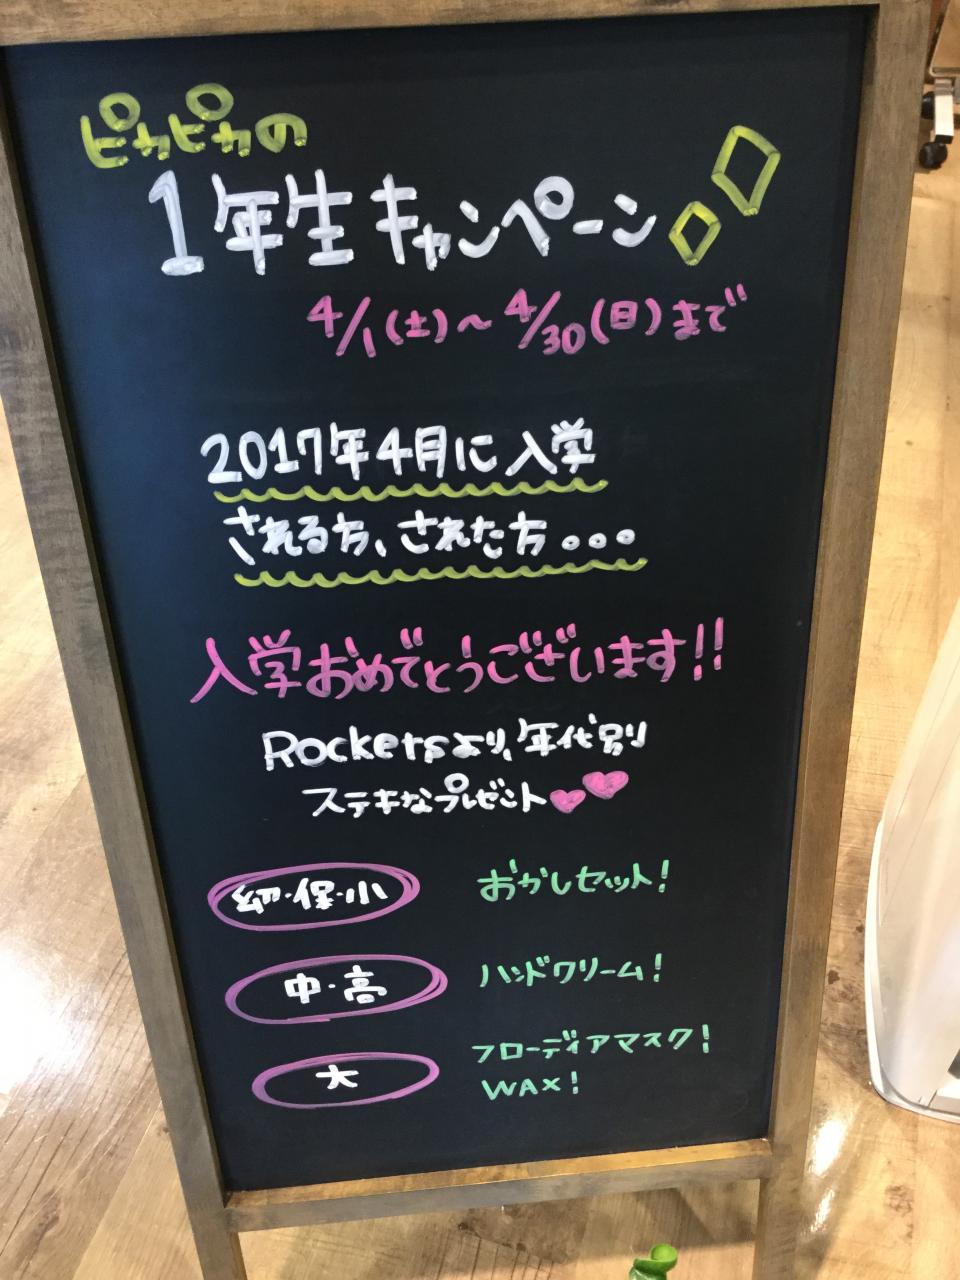 ピカピカの
1年生キャンペーン
4/1(土)～4/30(日)まで
2017年4月に入学
される方、された方。。。
入学おめでとうございます!!
Rocketsより、年代別
ステキなプレゼント
幼・保・小 おかしセット!
中・高 ハンドクリーム!
大 フローディアマスク!
WAX!